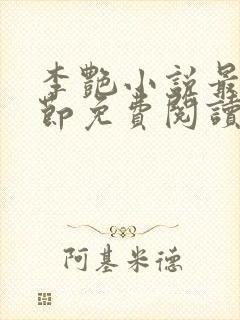 李艷小說最
節免費閱讀
阿基米德